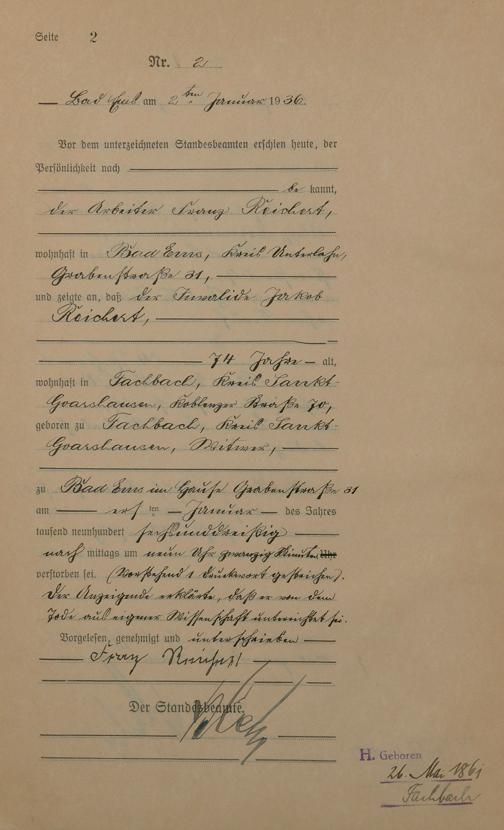 Seite 2
Nr. 2
Bad Ems am 2ten Januar 1936.
Vor dem unterzeichneten Standesbeamten erschien heute, der
Persönlichkeit nach
be kannt,
der Arbeiter Franz Reichert,
wohnhaft in Bad Ems, Kreis Unterlahn,
Grabenstraße 31,
und zeigte an, daß der Invalide Jakob
Reichert,
74 Jahre alt,
wohnhaft in Fachbach, Kreis Sankt-
Goarshausen, Koblenzer Straße 70,
geboren zu Fachbach, Kreis Sankt-
Goarshausen, Witwer,
zu Bad Ems im Hause Grabenstraße 31
am ersten Januar des Jahres
tausend neunhundert sechsunddreißig
nach mittags um neun Uhr zwanzig Minuten Uhr
verstorben sei. (Vorstehend 1 Druckwort gestrichen).
Der Anzeigende erklärte, daß er von dem
Tode aus eigener Wissenschaft unterrichtet sei.
Vorgelesen, genehmigt und unterschrieben
Franz Reichert
Der Standesbeamte.
H. Geboren
26. Mai 1861
Fachbach